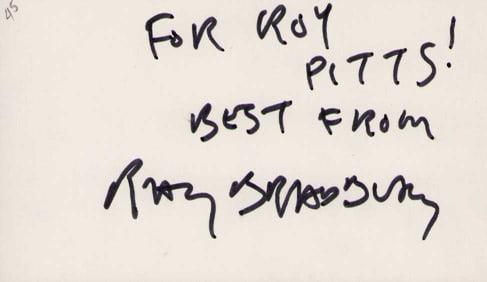 45
FOR ROY
PITTS!
BEST FROM
RAY BRADBURY